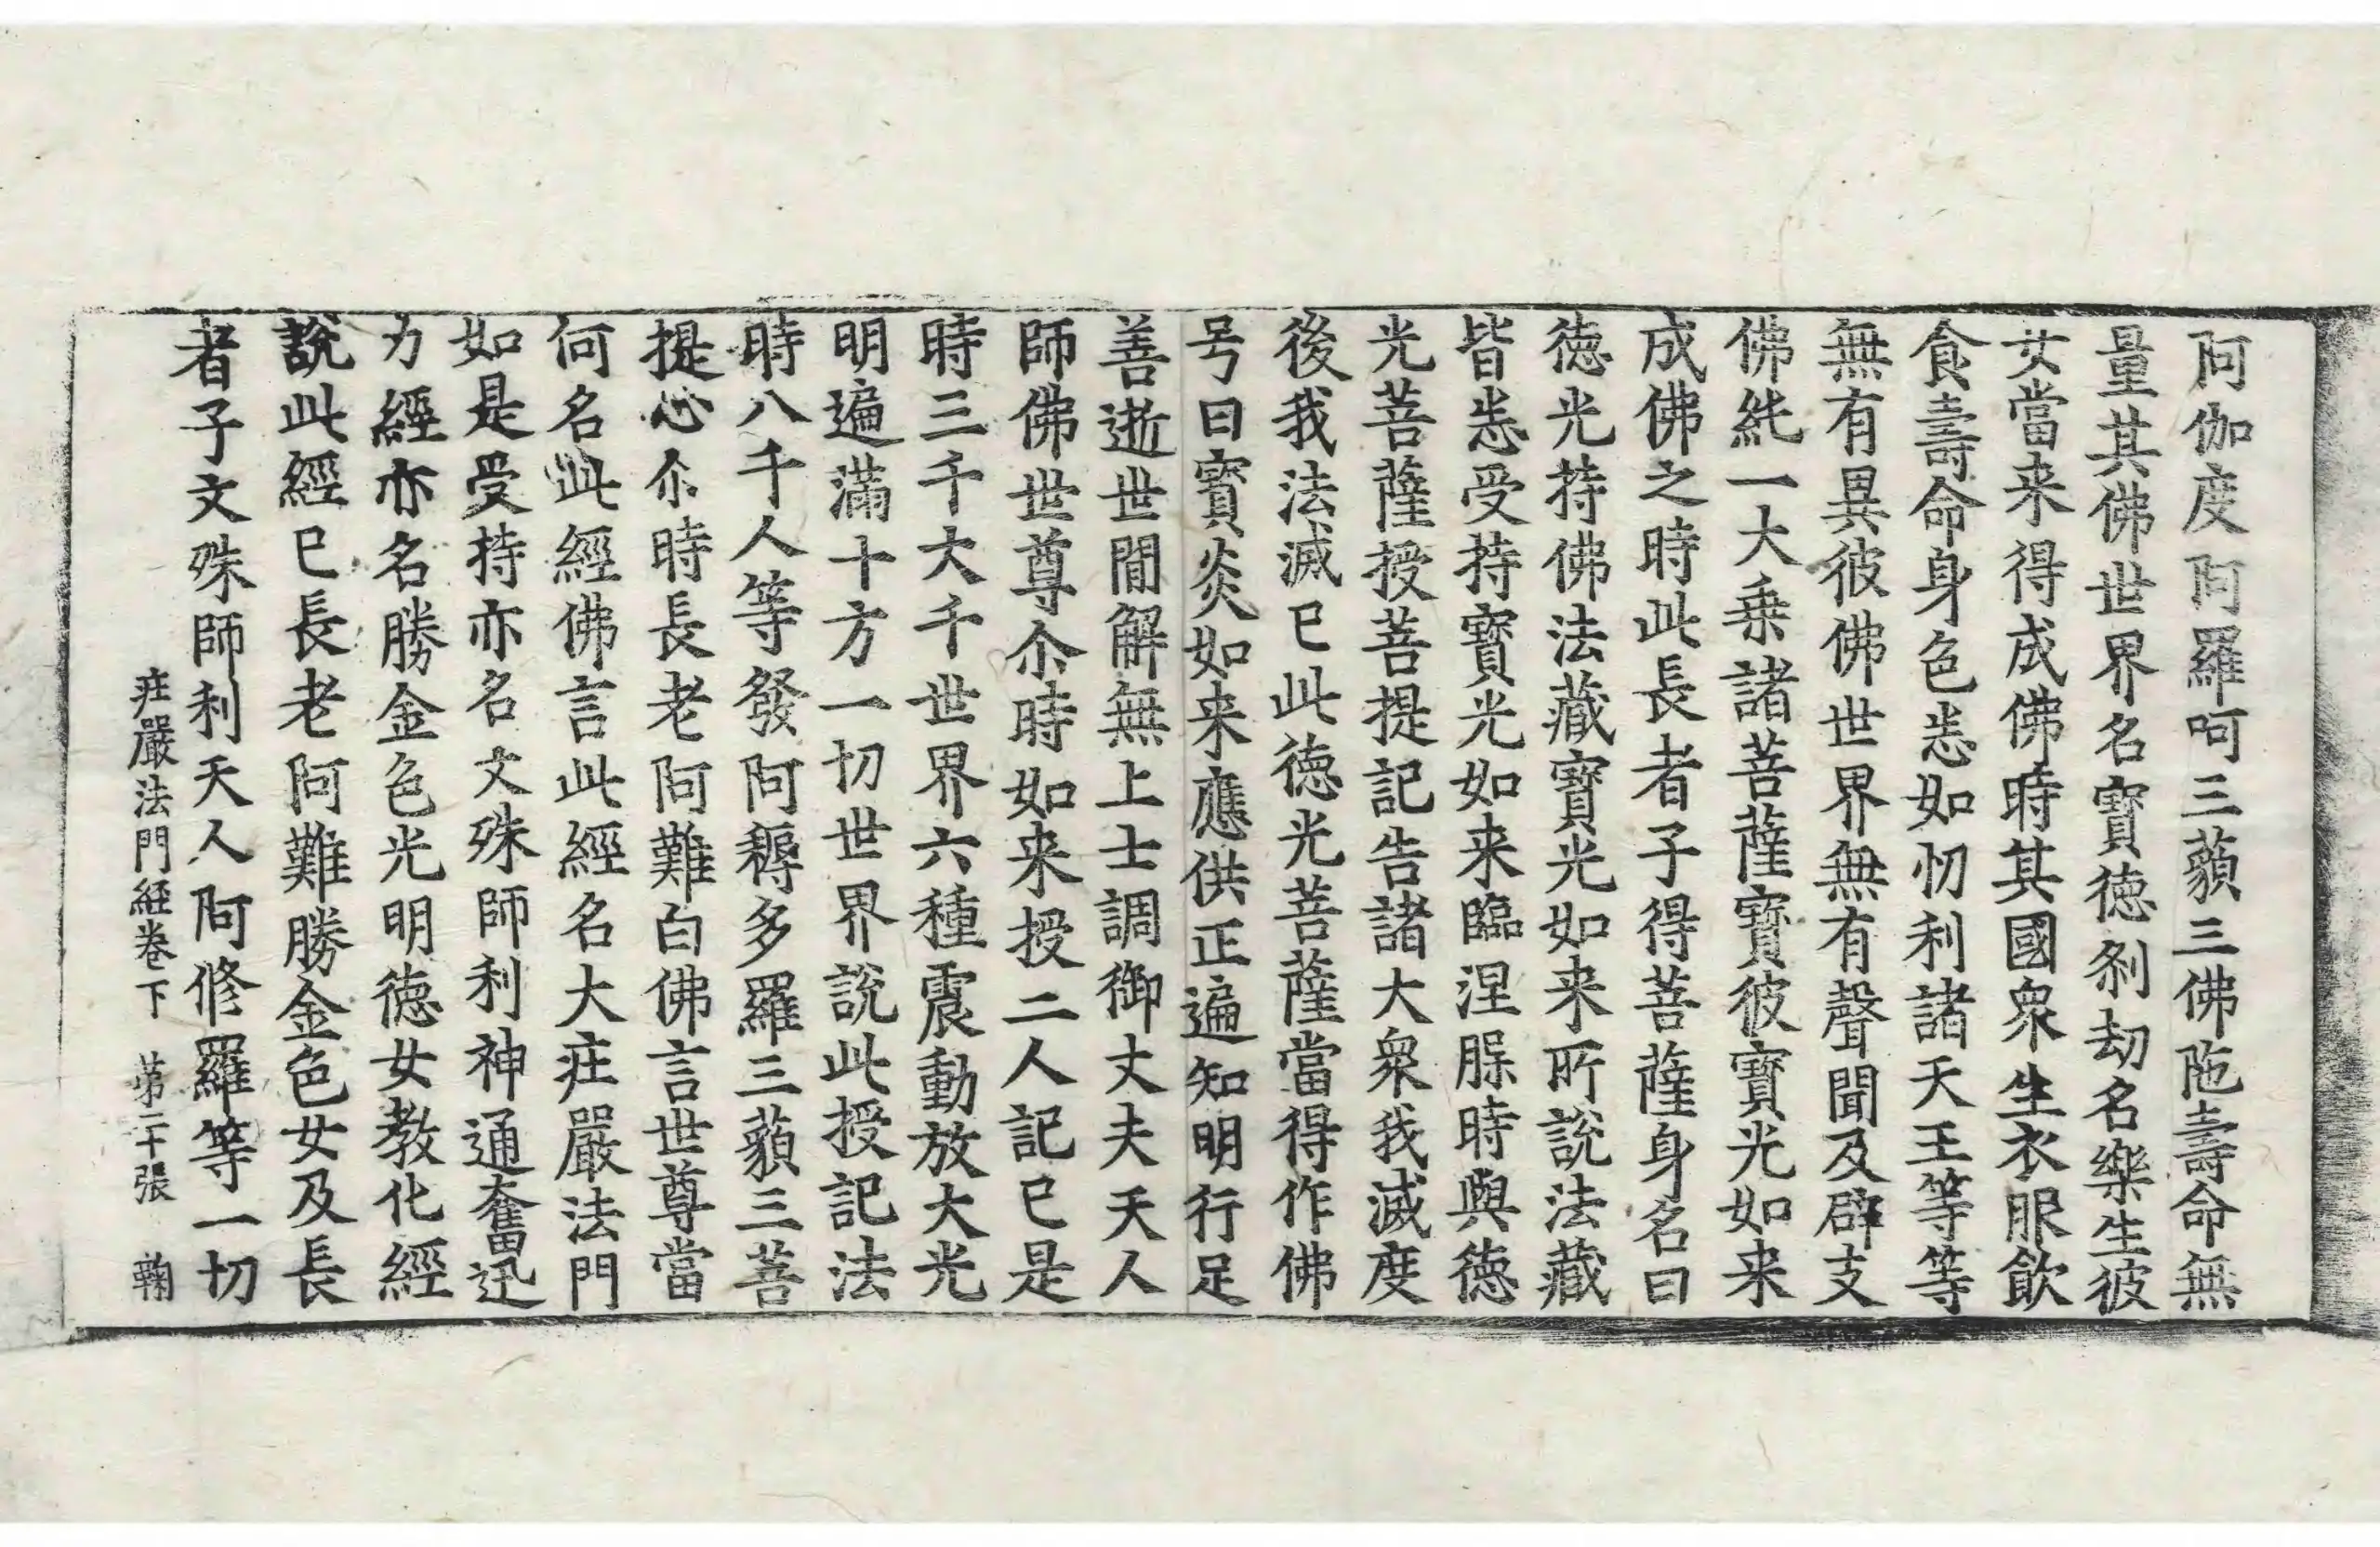 阿伽度阿羅呵三藐三佛陁壽命無
量其佛世界名寶德刹劫名樂生彼
女當来得成佛時其國衆生衣服飲
食壽命身色悉如忉利諸天王等等
無有異彼佛世界無有聲聞及辟支
佛純一大乗諸菩薩寶彼寶光如来
成佛之時此長者子得菩薩身名曰
德光持佛法藏寶光如来所說法藏
皆悉受持寶光如来臨涅𣬈時與德
光菩薩授菩提記告諸大衆我滅度
後我法滅已此德光菩薩當得作佛
号曰寶炎如来應供正遍知明行足
善逝世閒解無上士調御丈夫天人
師佛世尊尒時如来授二人記已是
時三千大千世界六種震動放大光
明遍滿十方一切世界說此授記法
時八千人等發阿耨多羅三藐三菩
提心尒時長老阿難白佛言世尊當
何名此經佛言此經名大庄嚴法門
如是受持亦名文殊師利神通奮迅
力經亦名勝金色光明德女教化經
說此經已長老阿難勝金色女及長
者子文殊師利天人阿修羅等一切
庄嚴法門経卷下 苐二十張 鞠